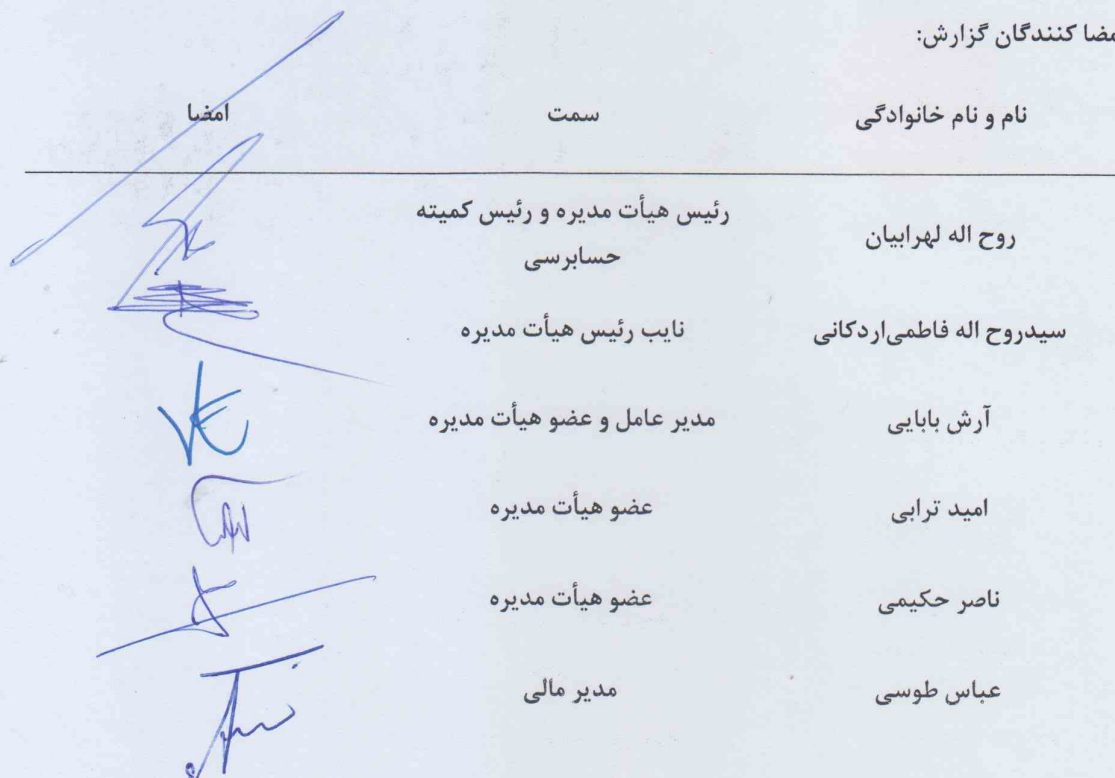 مضا کنندگان گزارش:
نام و نام خانوادگی سمت امضا
روح اله لهرابیان رئیس هیأت مدیره و رئیس کمیته
حسابرسی
سیدروح اله فاطمی‌اردکانی نایب رئیس هیأت مدیره
آرش بابایی مدیر عامل و عضو هیأت مدیره
امید ترابی عضو هیأت مدیره
ناصر حکیمی عضو هیأت مدیره
عباس طوسی مدیر مالی